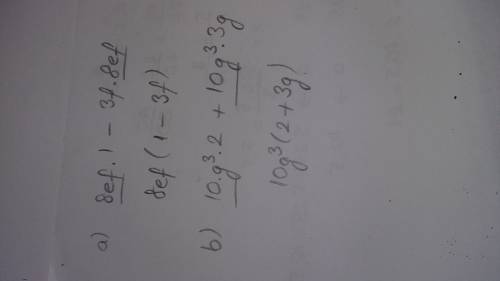 a) 8ef.1 - 3f.8ef
8ef (1-3f)
b) 10.g³.2 + 10g³.3g
10g³(2+3g)